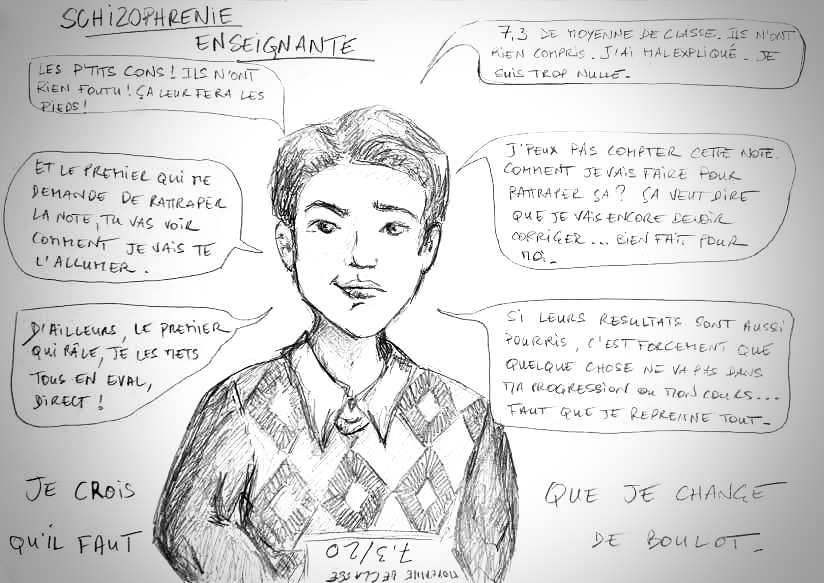 SCHIZOPHRENIE
ENSEIGNANTE
LES P'TITS CONS! ILS N'ONT
RIEN FOUTU! ÇA LEUR FERA LES
PIEDS!
7,3 DE MOYENNE DE CLASSE. ILS N'ONT
RIEN COMPRIS. J'AI MAL EXPLIQUÉ. JE
SUIS TROP NULLE.
ET LE PREMIER QUI ME
DEMANDE DE RATTRAPER
LA NOTE, TU VAS VOIR
COMMENT JE VAIS TE
L'ALLUMER.
J'PEUX PAS COMPTER CETTE NOTE.
COMMENT JE VAIS FAIRE POUR
RATTRAPER ÇA? ÇA VEUT DIRE
QUE JE VAIS ENCORE DEVOIR
CORRIGER... BIEN FAIT POUR
MOI.
D'AILLEURS, LE PREMIER
QUI RÂLE, JE LES METS
TOUS EN EVAL,
DIRECT!
SI LEURS RESULTATS SONT AUSSI
POURRIS, C'EST FORCEMENT QUE
QUELQUE CHOSE NE VA PAS DANS
MA PROGRESSION OU MON COURS...
FAUT QUE JE REPRENNE TOUT.
JE CROIS
QU'IL FAUT
QUE JE CHANGE
DE BOULOT.
MOYENNE DE CLASSE
7,3/20